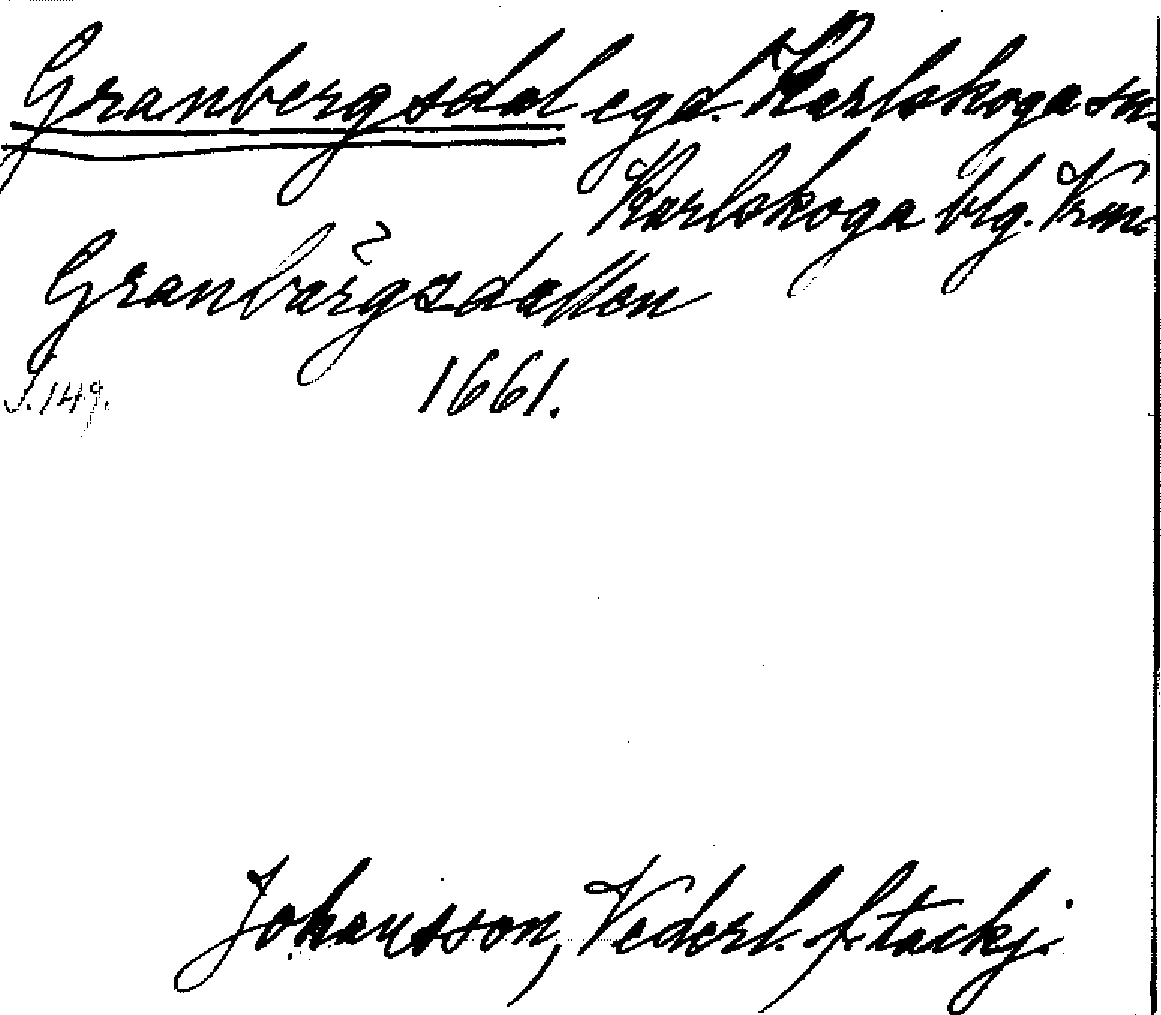 Granbergsdal egd. Karlskoga sn.
Karlskoga blg. Vrm.
Granbärgzdallen
S. 149. 1661.
Johansson, Vederl. f. tackj.